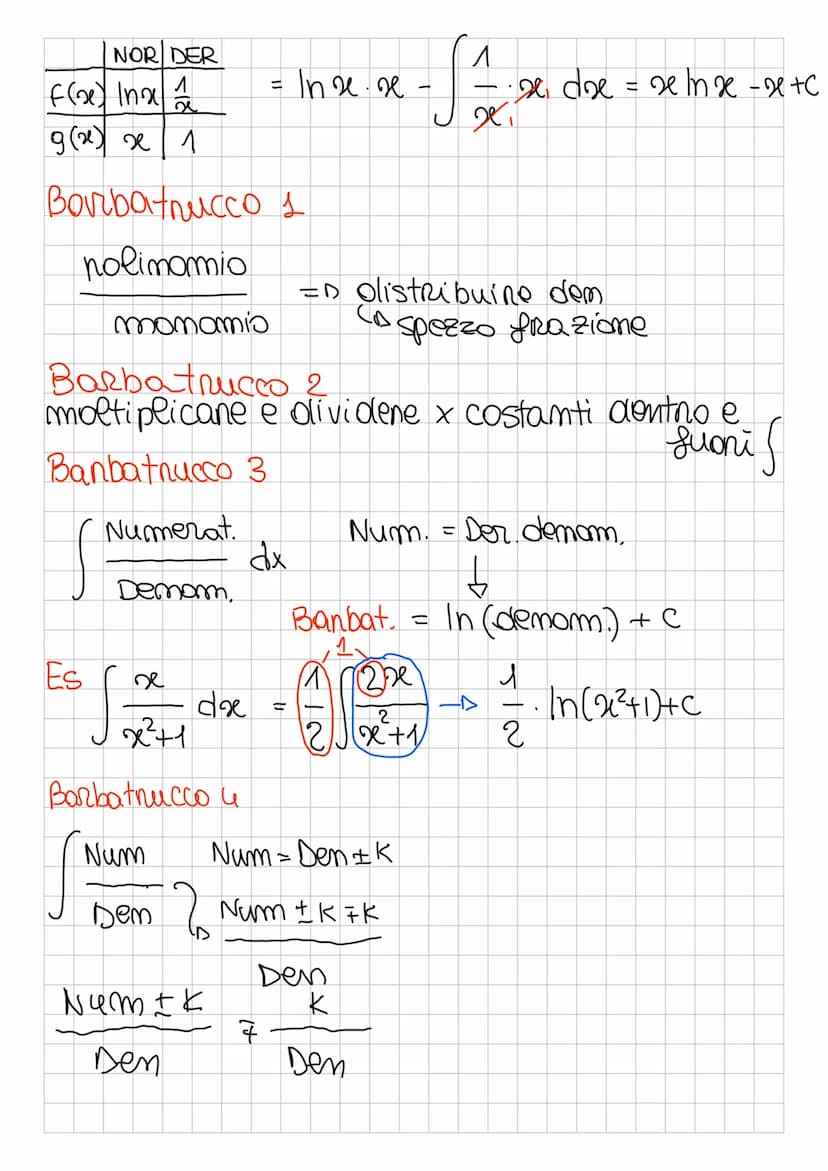 NOR DER
f(x) ln x 1/x
g(x) x 1
= ln x · x - ∫ 1/x · x dx = x ln x - x + C
Barbatrucco 1
polinomio / monomio => distribuire dem
↳ spezzo frazione
Barbatrucco 2
moltiplicare e dividere x costanti dentro e
fuori ∫
Barbatrucco 3
∫ Numerat. / Denom. dx Num. = Der. denom.
↓
Barbat. = ln (denom.) + C
1
Es ∫ x / x²+1 dx = 1/2 ∫ 2x / x²+1 → 1/2 · ln(x²+1)+C
Barbatrucco 4
∫ Num / Dem Num = Den ± K
Num ± K ∓ K / Den
Num ± K / Den ∓ K / Den